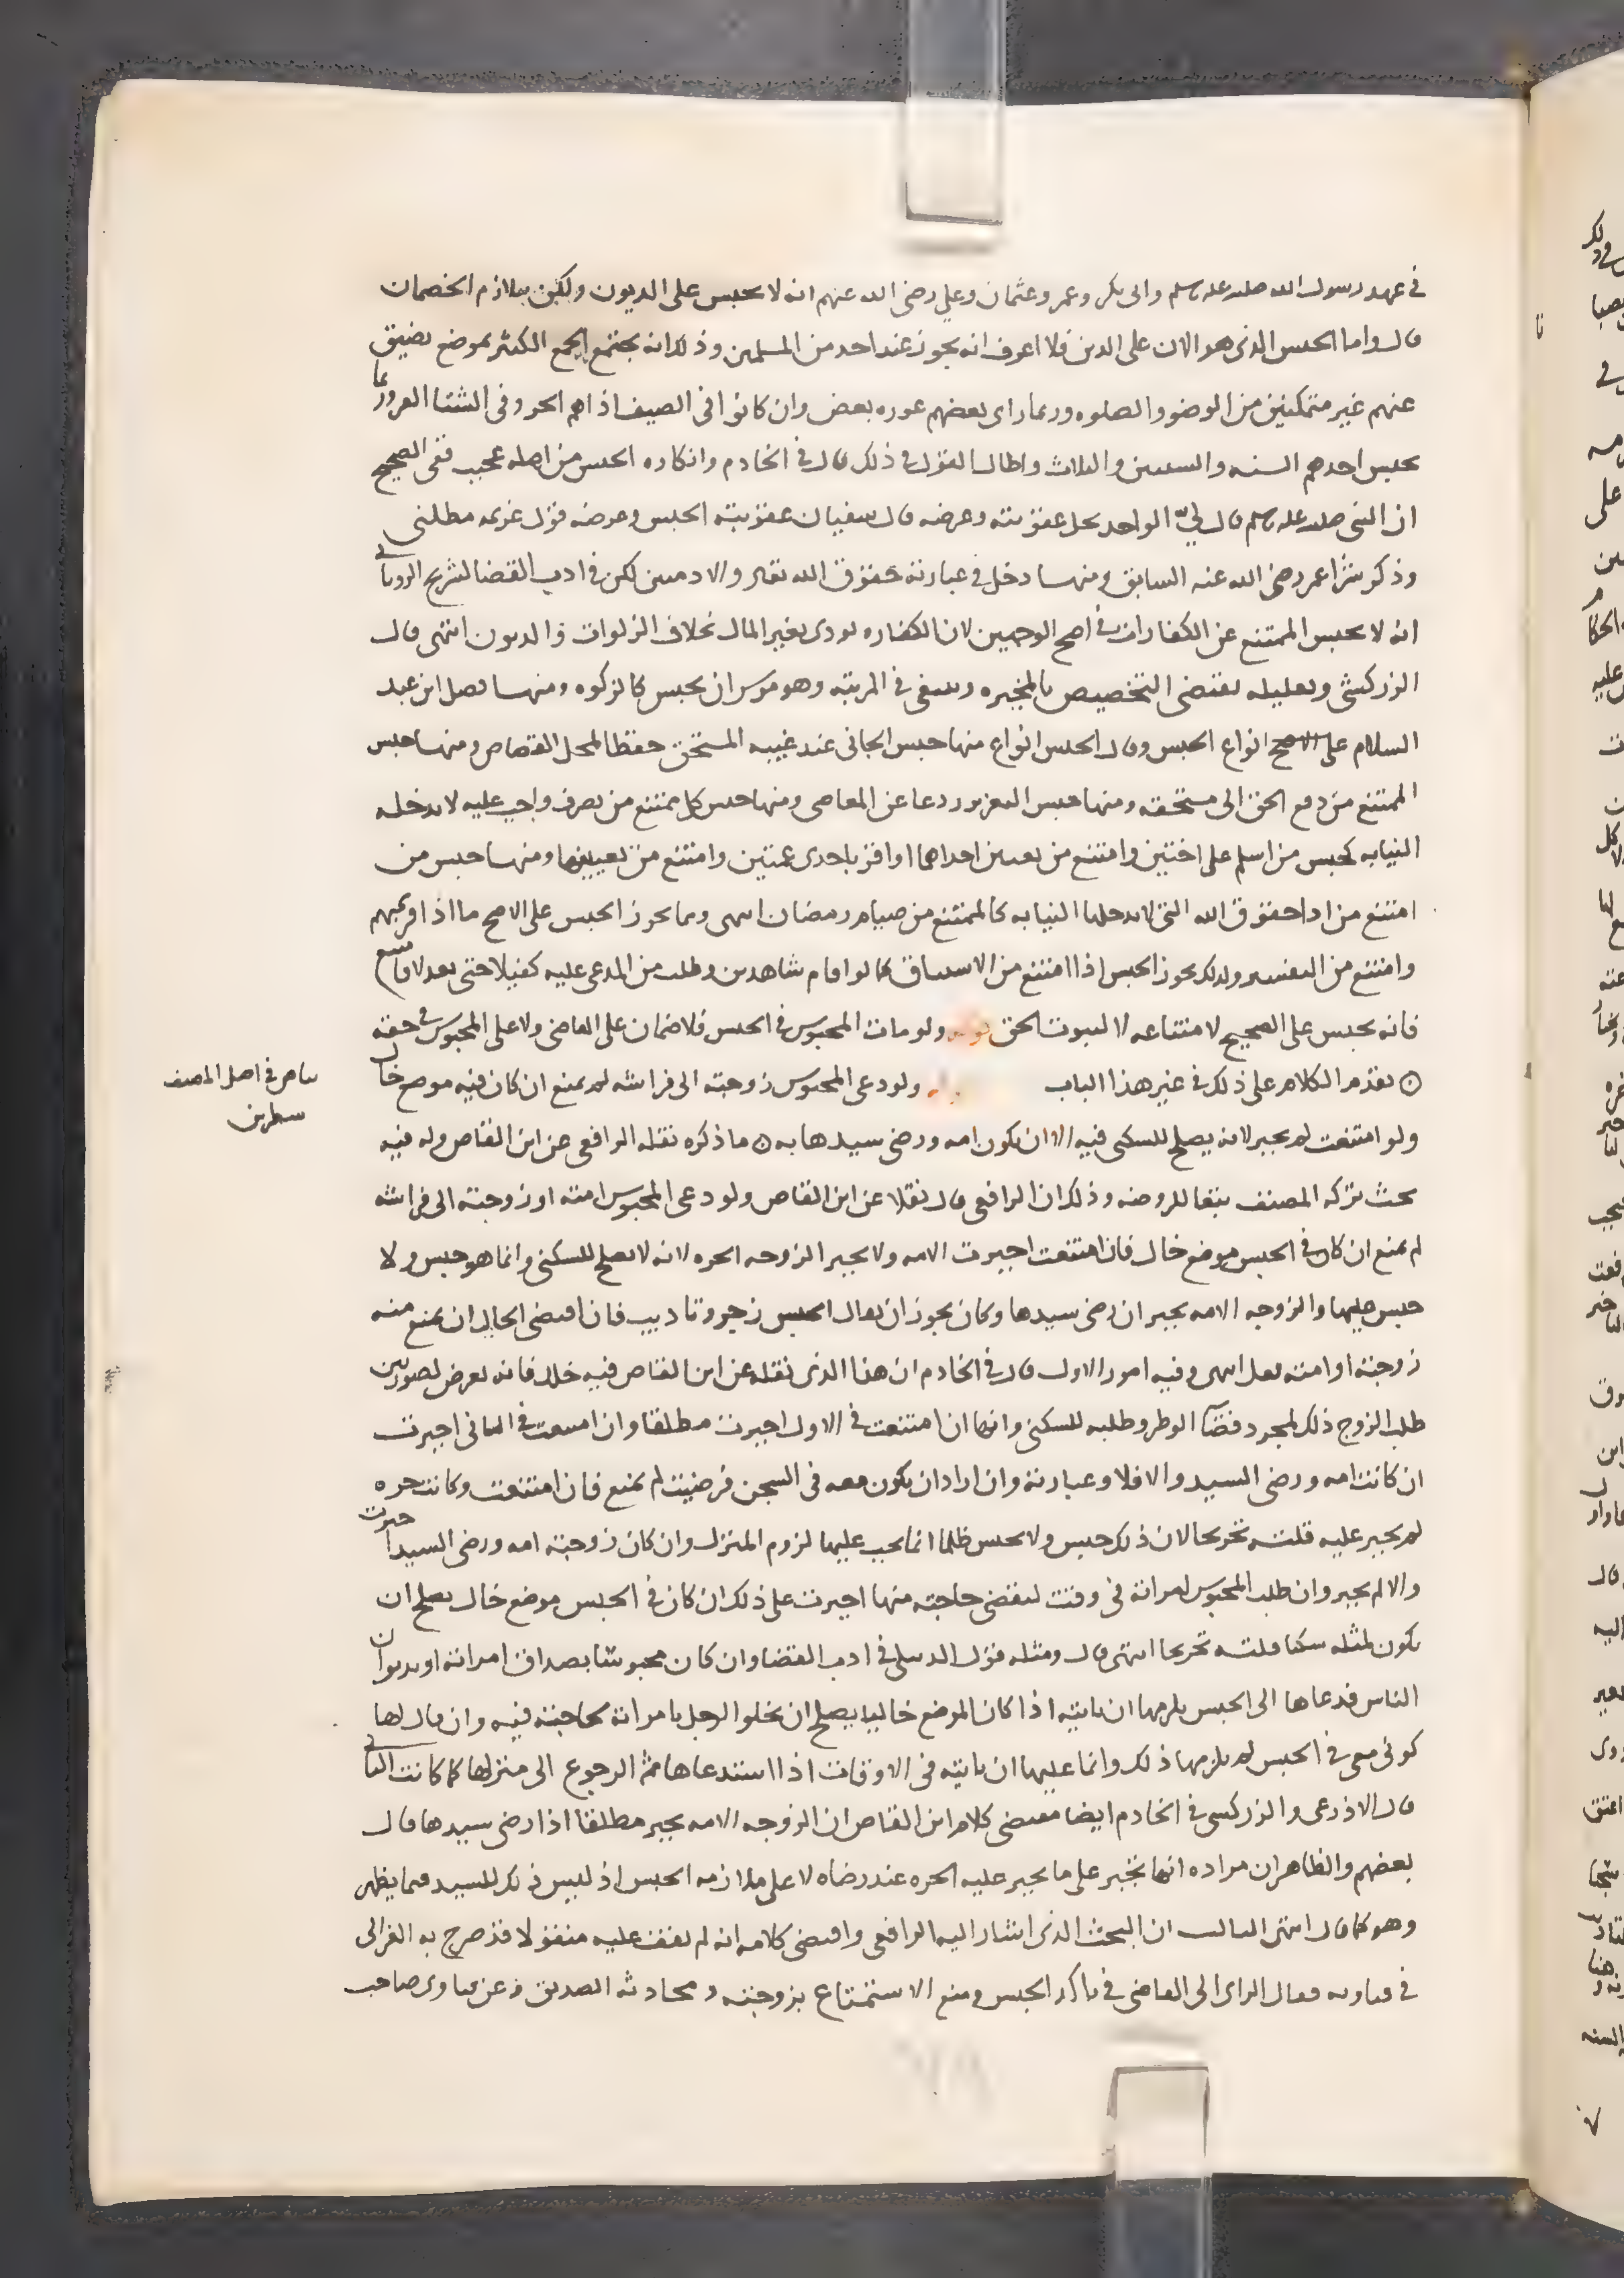 في عهد رسول الله صلى الله عليه وسلم وابي بكر وعمر وعثمان وعلي رضي الله عنهم انه لا يحبس على الديون ولكن يتلازم الخصمان
قال واما الحبس الذي هو الان على الدين فلا اعرف انه يجوز عند احد من المسلمين وذلك انه يجتمع الجمع الكثير بموضع يضيق
عنهم غير متمكنين من الوضو والصلوه وربما راى بعضهم عوره بعض وان كانوا في الصيف اذاهم الحر وفي الشتا القر وربما
يحبس احدهم السنه والسنتين والثلاث واطال القول في ذلك قال في الخادم وانكاره الحبس من اصله عجيب ففي الصحيح
ان النبي صلى الله عليه وسلم قال ليّ الواجد يحل عقوبته وعرضه قال سفيان عقوبته الحبس وعرضه قول غريمه مطلني
وذكر شرا عمر رضي الله عنه السابق ومنها دخل في عبارته حقوق الله تعالى والادميين لكن في ادب القضا لشريح الروياني
انه لا يحبس الممتنع عن الكفارات في اصح الوجهين لان الكفاره تودى بغير المال بخلاف الزلوات والديون انتهى قال
الزركشي وتعليله يقتضي التخصيص بالمخيره وينبغي في المرتبه وهو موسر ان يحبس كالزكوه ومنها فصل ابن عبد
السلام على الاصح انواع الحبس وقال الحبس انواع منها حبس الجاني عند غيبه المستحق حفظا لمحل القصاص ومنها حبس
الممتنع من دفع الحق الى مستحقه ومنها حبس التعزير ردعا عن المعاصي ومنها حبس كل ممتنع من تصرف واجب عليه لا تدخله
النيابه كحبس من اسلم على اختين وامتنع من تعيين احداهما او اقر باحدى عينين وامتنع من تعيينها ومنها حبس من
امتنع من ادا حقوق الله التي لا تدخلها النيابه كالممتنع من صيام رمضان انتهى ومما يجوز الحبس على الاصح ما اذا اقر بمبهم
وامتنع من التفسير وكذلك يجوز الحبس اذا امتنع من الاستيثاق كما لو اقام شاهدين وطلب من المدعى عليه كفيلا حتى يعدلا فامتنع
فانه يحبس على الصحيح لامتناعه لا لثبوت الحق قوله ولو مات المحبوس في الحبس فلا ضمان على القاضي ولا على المحبوس في حقه
تقدم الكلام على ذلك في غير هذا الباب قوله ولو دعى المحبوس زوجته الى فراشه لم يمنع ان كان فيه موضع خال
بياض في اصل المصنف
سطرين
ولو امتنعت لم يجبر لانه يصلح للسكنى فيه الا ان تكون امه ورضي سيدها به ما ذكره نقله الرافعي عن ابن القاص وله فيه
بحث تركه المصنف تبعا للروضه وذلك ان الرافعي قال نقلا عن ابن القاص ولو دعى المحبوس امته او زوجته الى فراشه
لم يمنع ان كان في الحبس موضع خال فان امتنعت اجبرت الامه ولا يجبر الزوجه الحره لانه لا يصلح للسكنى وانما هو حبس ولا
حبس عليها والزوجه الامه يجبر ان رضي سيدها وكان يجوز ان يقال الحبس زجر وتاديب فان اقتضى الحال ان يمنع منه
زوجته او امته فعل انتهى وفيه امور الاول قال في الخادم ان هذا الذي نقله عن ابن القاص فيه خلل فانه تعرض لصورتين
طلب الزوج ذلك لمجرد قضآ الوطر وطلبه للسكنى وانها ان امتنعت في الاول اجبرت مطلقا وان امتنعت في الثاني اجبرت
ان كانت امه ورضي السيد والا فلا وعبارته وان اراد ان يكون معه في السجن فرضيت لم يمنع فان امتنعت وكانت حره
لم يجبر عليه قلته تخريجا لان ذلك حبس ولا يحبس ظلما انما يجب عليها لزوم المنزل وان كان زوجته امه ورضي السيد اجبرت
والا لم يجبر وان طلب المحبوس امراته في وقت ليقضي حاجته منها اجبرت على ذلك ان كان في الحبس موضع خال يصلح ان
يكون لمثله سكنا قلته تخريجا انتهى قال ومثله قول الدبيلي في ادب القضا وان كان محبوسا بصداق امراته او بديون
الناس فدعاها الى الحبس يلزمها ان تاتيه اذا كان الموضع خاليا يصلح ان يخلوا الرجل بامراته لحاجته فيه وان قال لها
كوني معي في الحبس لم يلزمها ذلك وانما عليها ان تاتيه في الاوقات اذا استدعاها ثم الرجوع الى منزلها كما كانت الثاني
قال الاذرعي والزركشي في الخادم ايضا مقتضى كلام ابن القاص ان الزوجه الامه يجبر مطلقا اذا رضي سيدها قال
بعضهم والظاهر ان مراده انها تجبر على ما يجبر عليه الحره عند رضاه لا على ملازمه الحبس اذ ليس ذلك للسيد فيما يظهر
وهو كما قال انتهى الثالث ان البحث الذي اشار اليه الرافعي واقتضى كلامه انه لم يقف عليه منقولا قد صرح به الغزالي
في فتاويه فقال الراي الى القاضي في تاكيد الحبس ومنع الاستمتاع بزوجته ومحادثه الصديق وعن فتاوى صاحب